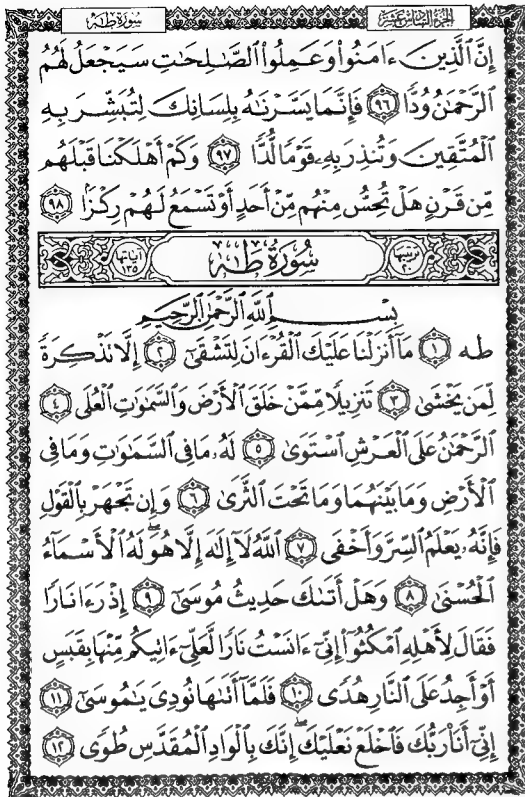 الجزء السادس عشر
سورة طه
إِنَّ ٱلَّذِينَ ءَامَنُوا۟ وَعَمِلُوا۟ ٱلصَّـٰلِحَـٰتِ سَيَجْعَلُ لَهُمُ
ٱلرَّحْمَـٰنُ وُدًّا ٩٦ فَإِنَّمَا يَسَّرْنَـٰهُ بِلِسَانِكَ لِتُبَشِّرَ بِهِ
ٱلْمُتَّقِينَ وَتُنذِرَ بِهِۦ قَوْمًا لُّدًّا ٩٧ وَكَمْ أَهْلَكْنَا قَبْلَهُم
مِّن قَرْنٍ هَلْ تُحِسُّ مِنْهُم مِّنْ أَحَدٍ أَوْ تَسْمَعُ لَهُمْ رِكْزًۢا ٩٨
ترتيبها ٢٠ سُورَةُ طه آياتها ١٣٥
بِسْمِ ٱللَّهِ ٱلرَّحْمَـٰنِ ٱلرَّحِيمِ
طه ١ مَآ أَنزَلْنَا عَلَيْكَ ٱلْقُرْءَانَ لِتَشْقَىٰٓ ٢ إِلَّا تَذْكِرَةً
لِّمَن يَخْشَىٰ ٣ تَنزِيلًا مِّمَّنْ خَلَقَ ٱلْأَرْضَ وَٱلسَّمَـٰوَٰتِ ٱلْعُلَى ٤
ٱلرَّحْمَـٰنُ عَلَى ٱلْعَرْشِ ٱسْتَوَىٰ ٥ لَهُۥ مَا فِى ٱلسَّمَـٰوَٰتِ وَمَا فِى
ٱلْأَرْضِ وَمَا بَيْنَهُمَا وَمَا تَحْتَ ٱلثَّرَىٰ ٦ وَإِن تَجْهَرْ بِٱلْقَوْلِ
فَإِنَّهُۥ يَعْلَمُ ٱلسِّرَّ وَأَخْفَى ٧ ٱللَّهُ لَآ إِلَـٰهَ إِلَّا هُوَ ۖ لَهُ ٱلْأَسْمَآءُ
ٱلْحُسْنَىٰ ٨ وَهَلْ أَتَىٰكَ حَدِيثُ مُوسَىٰٓ ٩ إِذْ رَءَا نَارًا
فَقَالَ لِأَهْلِهِ ٱمْكُثُوٓا۟ إِنِّىٓ ءَانَسْتُ نَارًا لَّعَلِّىٓ ءَاتِيكُم مِّنْهَا بِقَبَسٍ
أَوْ أَجِدُ عَلَى ٱلنَّارِ هُدًى ١٠ فَلَمَّآ أَتَىٰهَا نُودِىَ يَـٰمُوسَىٰٓ ١١
إِنِّىٓ أَنَا۠ رَبُّكَ فَٱخْلَعْ نَعْلَيْكَ ۖ إِنَّكَ بِٱلْوَادِ ٱلْمُقَدَّسِ طُوًى ١٢